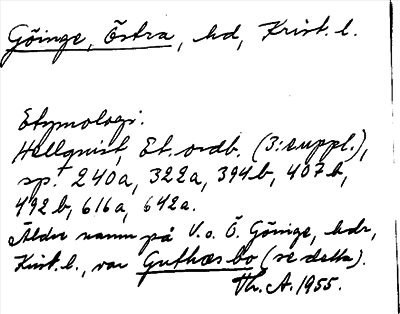 Göinge, Östra, hd, Krist. l.
Etymologi:
Hellquist, Et. ordb. (3: suppl.),
sp. 240a, 322a, 394b, 407b,
492b, 616a, 642a.
Äldre namn på V. o. Ö. Göinge, hdr,
Krist. l., var Guthæsbo (se detta).
Th. A. 1955.